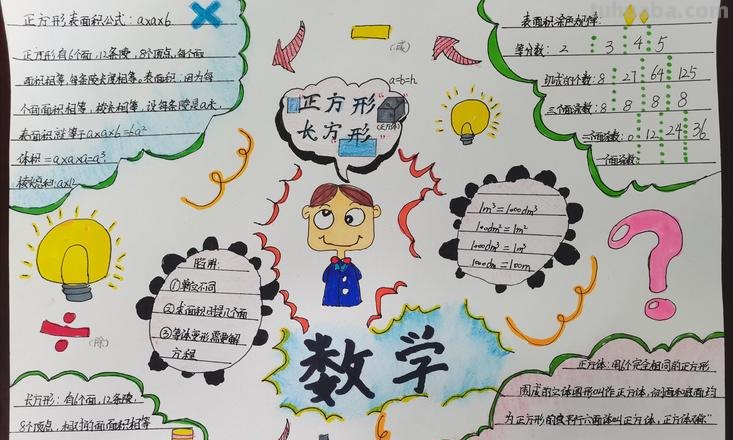 正方形表面积公式: a×a×6
正方形有6个面,12条棱,8个顶点,每个面
面积相等,每条棱长度相等。表面积,因为每
个面面积相等,棱长相等,设每条棱是a米,
表面积就等于a×a×6=6a²
体积=a×a×a=a³
棱长总和:a×12
(减)
a=b=h
正方形
长方形
(正方体)
表面积涂色规律
等分数: 2 3 4 5
切成的个数: 8 27 64 125
三个面涂数: 8 8 8 8
二个面涂数: 0 12 24 36
一个面涂数:
1m³=1000dm³
100dm²=1m²
1000dm³=1m³
陷阱:
①单位不同
②表面积
③等体变形需要解
方程
(除)
数学
长方形: 有6个面,12条棱,
8个顶点,相对的面面积相等
正方体: 用6个完全相同的正方形
围成的立体图形叫作正方体,
为正方形的直平行六面体叫正方体,正方体